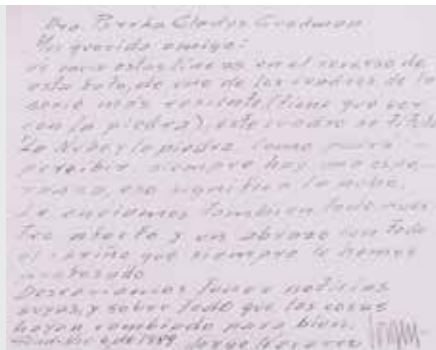 Dra. Gladys Goodman
Mi querido amiga:
estas líneas en el reverso de
esta foto, de uno de los cuadros de la
serie más resiente (tiene que ver
con la piedra), este cuadro se titula
La Nube y la piedra como podrá
percibir siempre hay una espe-
ranza, eso significa la nube.
Le enviamos también todo nues-
tro afecto y un abrazo con todo
el cariño que siempre le hemos
profesado
tener noticias
suyas, y saber todo que las cosas
hayan cambiado para bien.
de 1989 Jorge